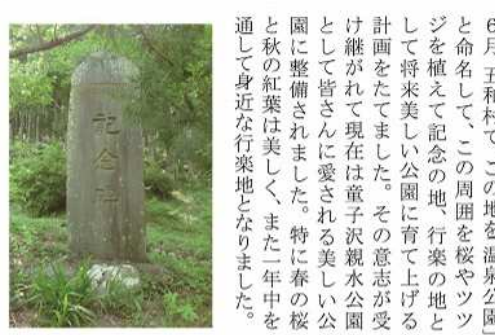 6月、五和村で、この地を「温泉公園」
と命名して、この周囲を桜やツツ
ジを植えて記念の地、行楽の地と
して将来美しい公園に育て上げる
計画をたてました。その意志が受
け継がれて現在は童子沢親水公園
として皆さんに愛される美しい公
園に整備されました。特に春の桜
と秋の紅葉は美しく、また一年中を
通して身近な行楽地となりました。
記念碑